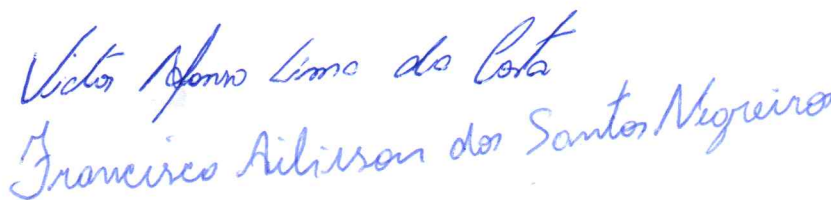 Victor Afonso Lima da Costa
Francisco Ailisson dos Santos Negreiros